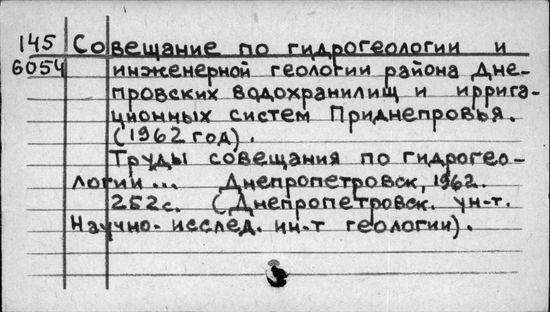 145 Совещание по гидрогеологии и
6054 инженерной геологии района Дне-
провских водохранилищ и иррига-
ционных систем Приднепровья.
(1962 год).
Труды совещания по гидрогео-
логии... Днепропетровск, 1962.
252с. (Днепропетровск. ун-т.
Научно-исслед. ин-т геологии).